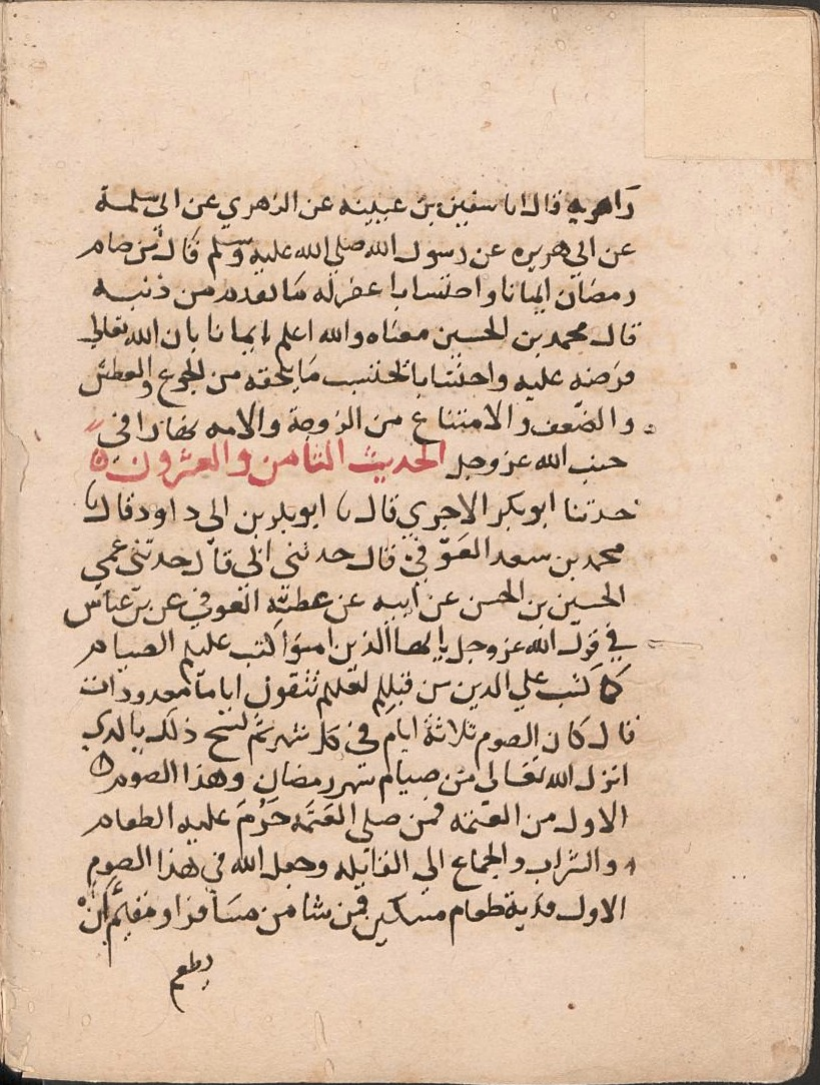 زاهريه قال انا سفين بن عيينه عن الزهري عن ابي سلمة
عن ابي هريره عن رسول الله صلي الله عليه وسلم قال من صام
رمضان ايمانا واحتسابا غفر له ما تقدم من ذنبه
قال محمد بن الحسين معناه والله اعلم ايمانا بان الله تعالي
فرضه عليه واحتسابا يحتسب ما يلحقه من الجوع والعطش
والضعف والامتناع من الزوجة والامه نهارا في
حنب الله عز وجل الحديث الثامن والعشرون
حدثنا ابو بكر الاجري قال نا ابو بكر بن ابي داود قال نا
محمد بن سعد العوفي قال حدثني ابي قال حدثني عمي
الحسين بن الحسن عن ابيه عن عطيه العوفي عن بن عباس
في قول الله عز وجل يا ايها الذين امنوا كتب عليكم الصيام
كما كتب علي الذين من قبلكم لعلكم تتقون اياما معدودات
قال كان الصوم ثلاثة ايام في كل شهر ثم نسخ ذلك بالذي
انزل الله تعالى من صيام شهر رمضان وهذا الصوم
الاول من العتمه فمن صلي العتمه حرم عليه الطعام
والشراب والجماع الي القابله وجعل الله في هذا الصوم
الاول فدية طعام مسكين فمن شا من مسافر او مقيم ان
يطعم